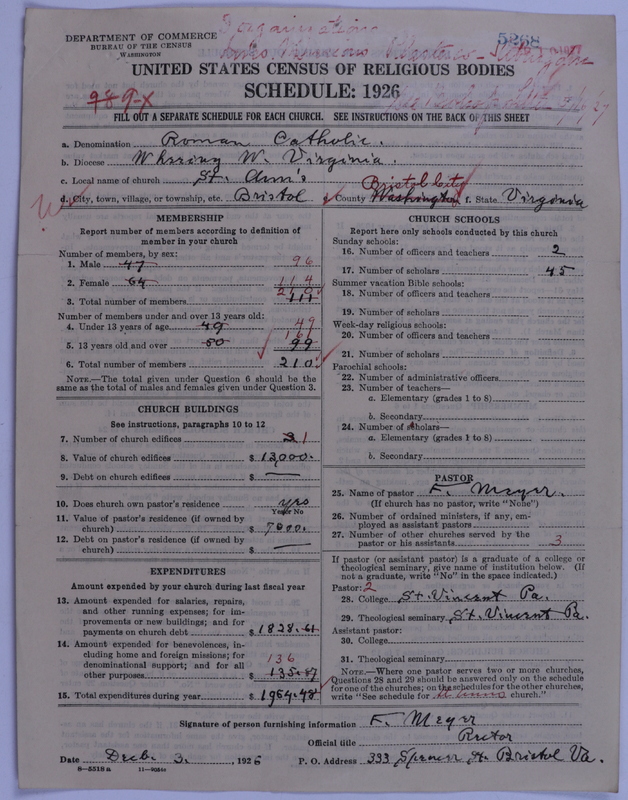 DEPARTMENT OF COMMERCE
BUREAU OF THE CENSUS
WASHINGTON
5268
UNITED STATES CENSUS OF RELIGIOUS BODIES
SCHEDULE: 1926
989-X
FILL OUT A SEPARATE SCHEDULE FOR EACH CHURCH. SEE INSTRUCTIONS ON THE BACK OF THIS SHEET
a. Denomination Roman Catholic.
b. Diocese Wheeing W. Virginia.
c. Local name of church St. Ann's
Bristol City
d. City, town, village, or township, etc. Bristol e. County Washington f. State Virginia
MEMBERSHIP
Report number of members according to definition of
member in your church
Number of members, by sex:
1. Male 47 96
2. Female 64 114
3. Total number of members 210 111
Number of members under and over 13 years old:
4. Under 13 years of age 49 49
5. 13 years old and over 50 161 99
6. Total number of members 210
NOTE.—The total given under Question 6 should be the
same as the total of males and females given under Question 3.
CHURCH BUILDINGS
See instructions, paragraphs 10 to 12
7. Number of church edifices 1
8. Value of church edifices $ 12,000.
9. Debt on church edifices $ —
10. Does church own pastor's residence yes
Yes or No
11. Value of pastor's residence (if owned by
church) $ 7000.
12. Debt on pastor's residence (if owned by
church) $ —
EXPENDITURES
Amount expended by your church during last fiscal year
13. Amount expended for salaries, repairs,
and other running expenses; for im-
provements or new buildings; and for
payments on church debt $ 1828.61
14. Amount expended for benevolences, in-
cluding home and foreign missions; for
denominational support; and for all
136
other purposes $ 135.87
15. Total expenditures during year $ 1964.48
CHURCH SCHOOLS
Report here only schools conducted by this church
Sunday schools:
16. Number of officers and teachers 2
17. Number of scholars 45
Summer vacation Bible schools:
18. Number of officers and teachers
19. Number of scholars
Week-day religious schools:
20. Number of officers and teachers
21. Number of scholars
Parochial schools:
22. Number of administrative officers
23. Number of teachers—
a. Elementary (grades 1 to 8)
b. Secondary
24. Number of scholars—
a. Elementary (grades 1 to 8)
b. Secondary
PASTOR
25. Name of pastor F. Meyer.
(If church has no pastor, write "None")
26. Number of ordained ministers, if any, em-
ployed as assistant pastors
27. Number of other churches served by the
pastor or his assistants 3
If pastor (or assistant pastor) is a graduate of a college or
theological seminary, give name of institution below. (If
not a graduate, write "No" in the space indicated.)
Pastor: 2
28. College St. Vincent Pa.
29. Theological seminary St. Vincent Pa.
Assistant pastor:
30. College
31. Theological seminary
NOTE.—Where one pastor serves two or more churches,
Questions 28 and 29 should be answered only on the schedule
for one of the churches; on the schedules for the other churches,
write "See schedule for St Anns church."
Signature of person furnishing information F. Meyer
Official title Rector
Date Decb. 3., 1926 P. O. Address 333 Spencer St. Bristol Va.
8—5518a 11—9054a